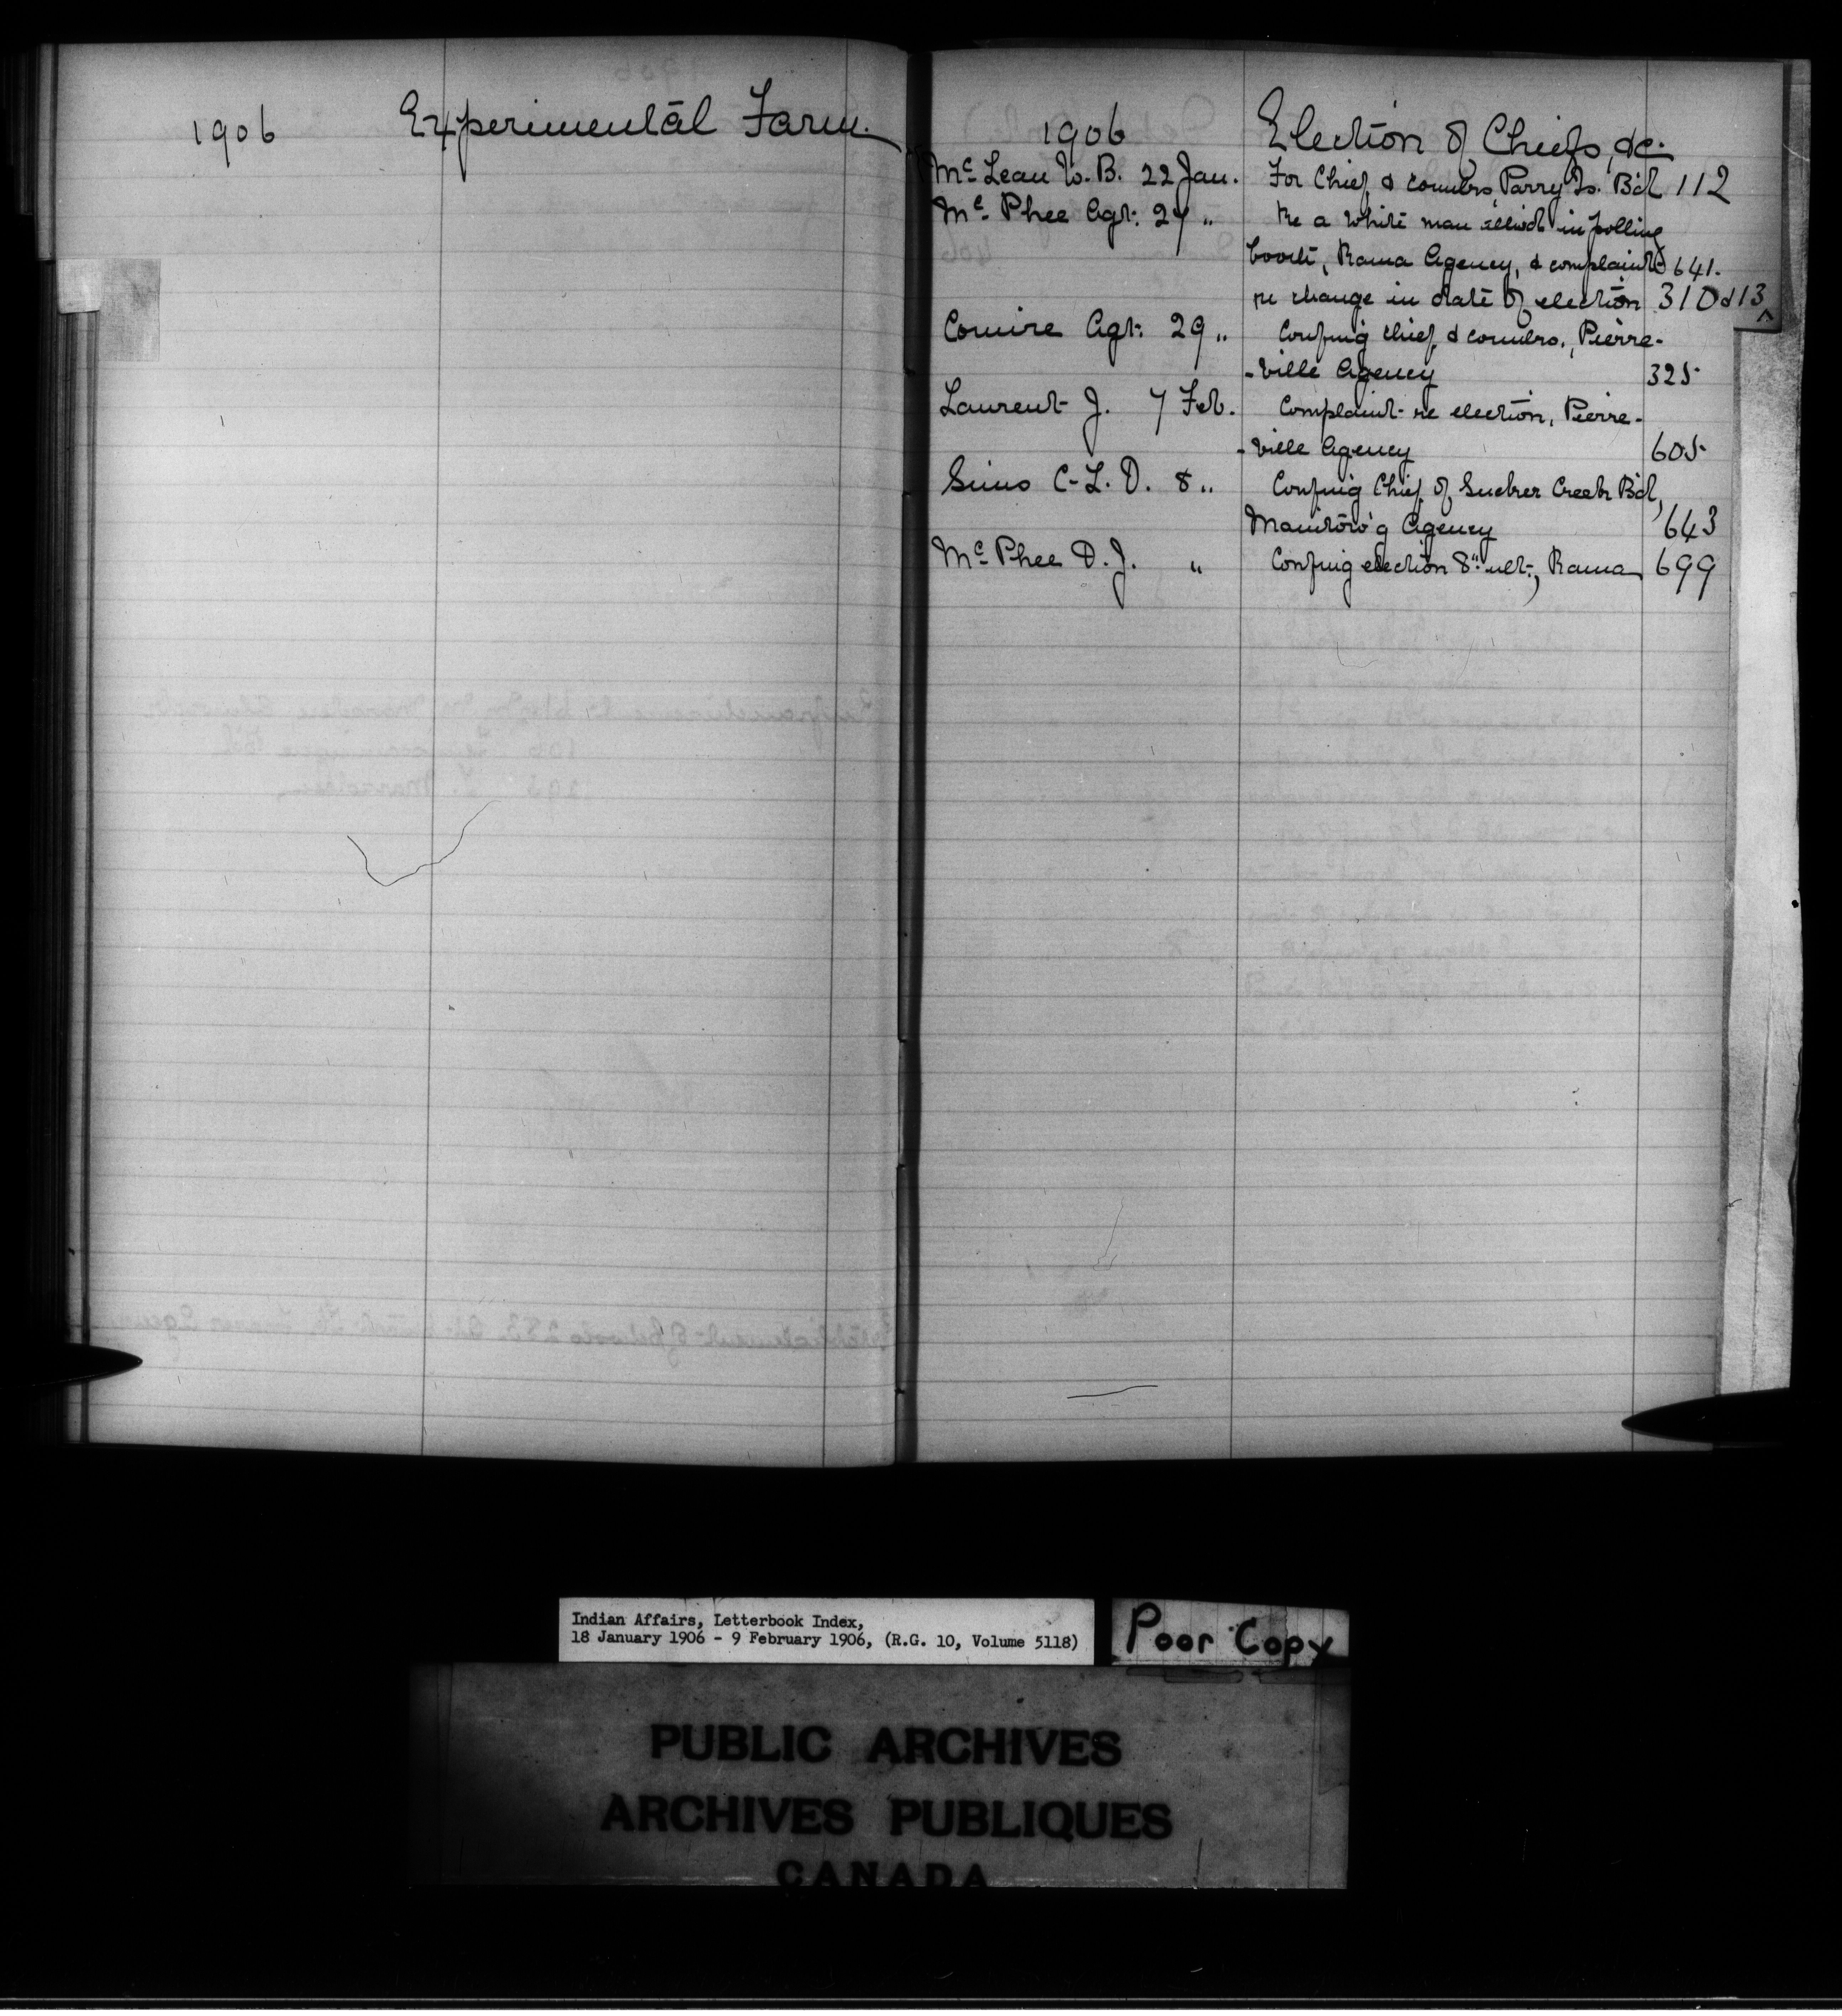 1906 Experimental Farm.
1906 Election of Chiefs, &c.
McLean W. B. 22 Jan. For Chief & counlrs, Parry Is. B'd 112
McPhee Agt. 27 " Re a white man in polling
booth, Rama Agency, & complaint 641.
re change in date of election 310 & 13
Comire Agt. 29 " Confmg chief & counlrs., Pierre-
-ville Agency 325
Laurent J. 7 Feb. Complaint re election, Pierre-
-ville Agency 605
Sims C. L. D. 8 " Confmg Chief of Sucker Creek B'd,
Manitow'g Agency 643
McPhee D. J. " Confmg election 8" ult., Rama 699
Indian Affairs, Letterbook Index,
18 January 1906 - 9 February 1906, (R.G. 10, Volume 5118)
Poor Copy
PUBLIC ARCHIVES
ARCHIVES PUBLIQUES
CANADA